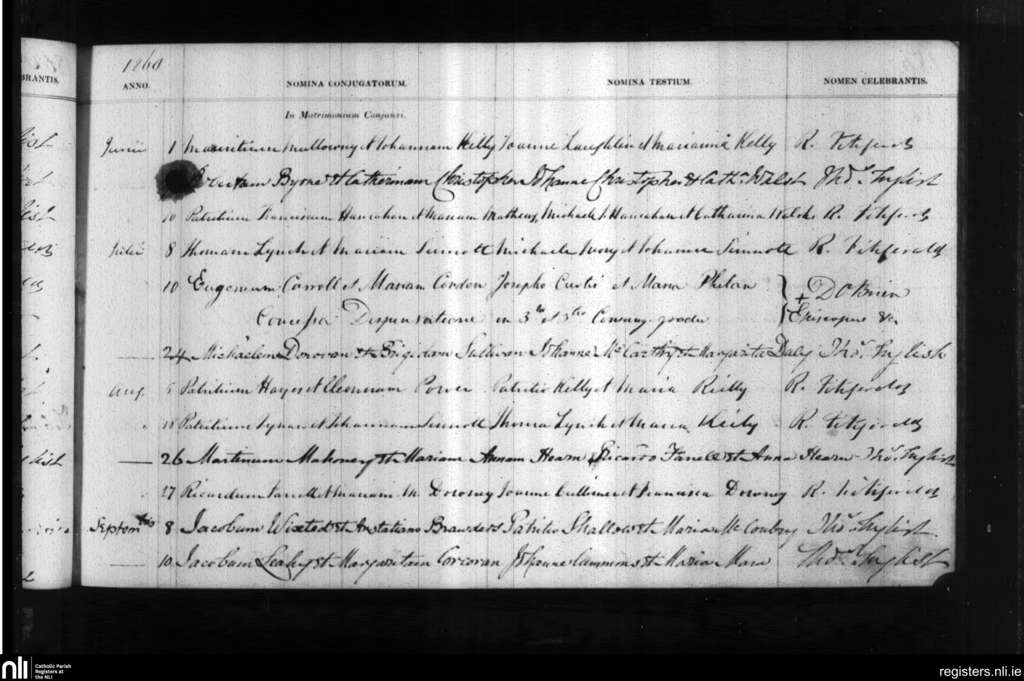 1860
BRANTIS.
ANNO. NOMINA CONJUGATORUM. NOMINA TESTIUM. NOMEN CELEBRANTIS.
In Matrimonium Conjunxi.
Junii 1 Mauritium Mullowny et Johannam Kelly Joanne Laughlin et Marianna Kelly R. Fitzgerald
Byrne et Catherinam Christopher Johanne Christopher et Cath. Walsh Thos. English
10 Patritium Hanrahan et Mariam Mathews, Michaele Hanrahan et Catharina R. Fitzgerald
Julii 8 Thomam Lynch et Mariam Sinnott Michaele et Johanna Sinnott R. Fitzgerald
10 Eugenium Carroll et Mariam Condon Josepho Curtis et Maria Phelan + D O'Brien
Concessa Dispensatione in 3tio et 3tio Consang. gradu Episcopus &c.
24 Michaelem Donovan et Brigidam Sullivan Johanne McCarthy et Margarita Daly Thos. English
Aug. 5 Patritium Hayes et Eleonoram Power Patritio Kelly et Maria Reilly R. Fitzgerald
15 Patritium et Johannam Sinnott Thoma Lynch et Maria Kiely R. Fitzgerald
26 Martinum Mahoney et Mariam Annam Hearn Ricardo Farrell et Anna Hearn Thos. English
27 Ricardum Farrell et Mariam Downey Joanne Cullinan et Francisca Downey R. Fitzgerald
Septembris 8 Jacobum Wixted et Anstatiam Browders Patritio Shallow et Maria McConbry Thos. English
10 Jacobum Leahy et Margaritam Corcoran Johanne Cummons et Maria Mara Thos. English
nli Catholic Parish
Registers at
the NLI
registers.nli.ie